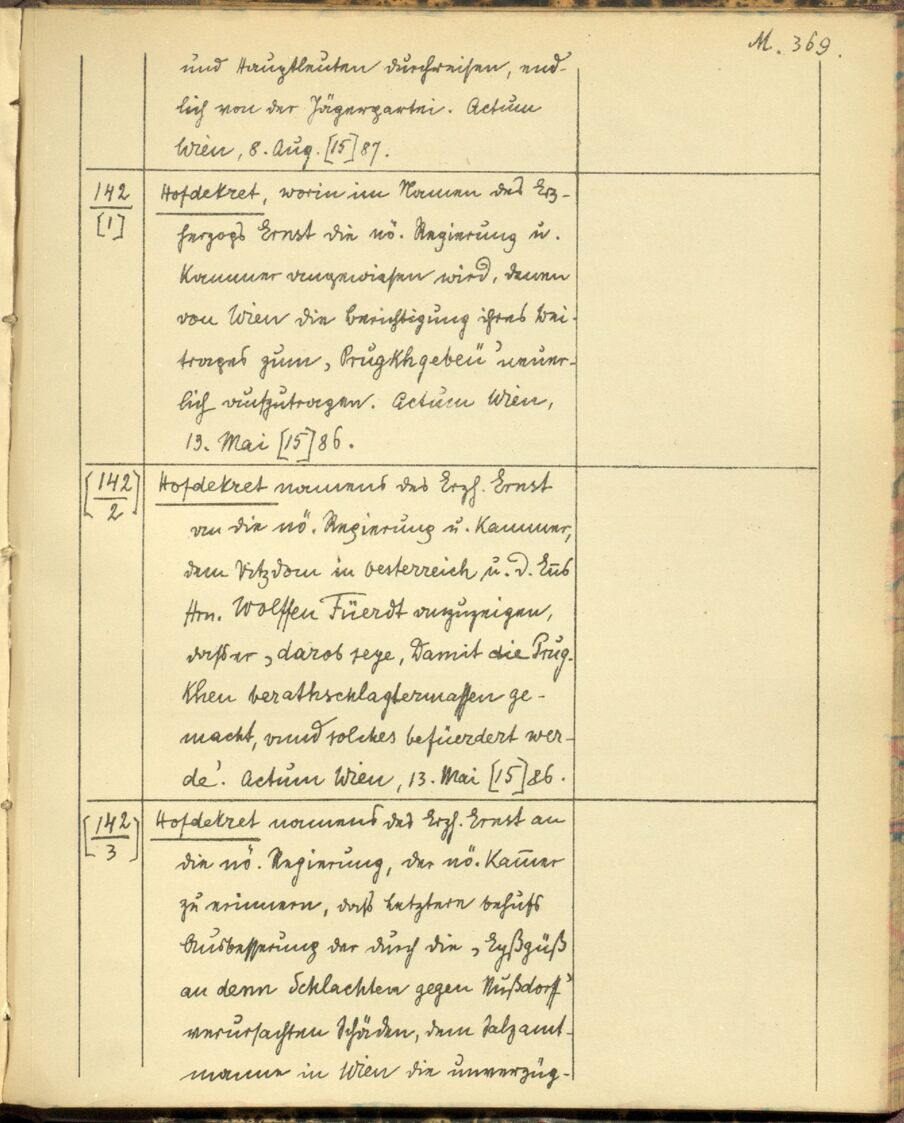 M. 369.
und Hauptleuten durchreisen, end-
lich von der Jägerpartei. Actum
Wien, 8. Aug. [15]87.
142
[1]
Hofdekret, worin im Namen des Erz-
herzogs Ernst die nö. Regierung u.
Kammer angewiesen wird, denen
von Wien die Berichtigung ihres Bei-
trages zum „Prugkhgebeü" neuer-
lich aufzutragen. Actum Wien,
13. Mai [15]86.
[142
2]
Hofdekret namens des Erzh. Ernst
an die nö. Regierung u. Kammer,
dem Vitzdom in Oesterreich u. d. Ens
Hrn. Wolffen Füerdt anzuzeigen,
daß er „darob seye, Damit die Prug-
khen berathschlagtermassen ge-
macht, vnnd solches befüerdert wer-
de". Actum Wien, 13. Mai [15]86.
[142
3]
Hofdekret namens des Erzh. Ernst an
die nö. Regierung, der nö. Kam̄er
zu erinnern, daß Letztere behufs
Ausbesserung der durch die „Eyßgüß
an denn Schlachten gegen Nußdorf"
verursachten Schäden, dem Salzamt-
manne in Wien die unverzüg-